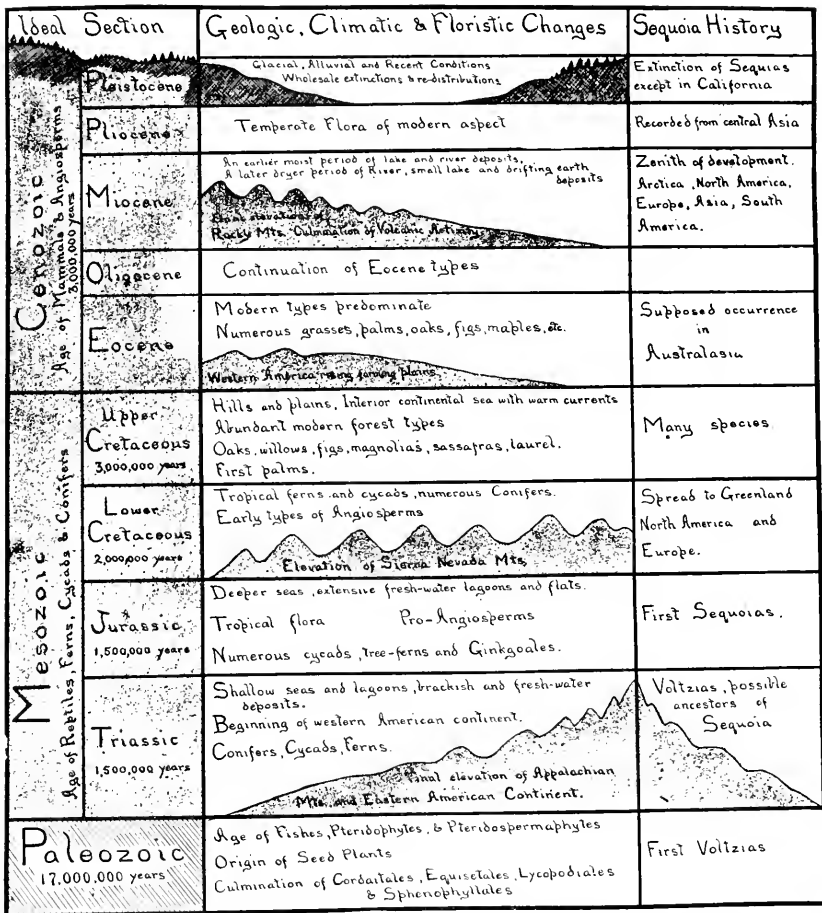 Ideal Section
Geologic, Climatic & Floristic Changes
Sequoia History
Cenozoic
Age of Mammals & Angiosperms
3,000,000 years
Pleistocene
Glacial, Alluvial and Recent Conditions
Wholesale extinctions & re-distributions
Extinction of Sequias
except in California
Pliocene
Temperate Flora of modern aspect
Recorded from central Asia
Miocene
An earlier moist period of lake and river deposits,
A later dryer period of River, small lake and drifting earth
deposits
elevations of
Rocky Mts. Culmination of Volcanic Activity
Zenith of development.
Arctica, North America,
Europe, Asia, South
America.
Oligocene
Continuation of Eocene types
Eocene
Modern types predominate
Numerous grasses, palms, oaks, figs, maples, etc.
Western America rising forming plains
Supposed occurrence
in
Australasia
Mesozoic
Age of Reptiles, Ferns, Cycads & Conifers
Upper
Cretaceous
3,000,000 years
Hills and plains, Interior continental sea with warm currents
Abundant modern forest types
Oaks, willows, figs, magnolias, sassafras, laurel.
First palms.
Many species
Lower
Cretaceous
2,000,000 years
Tropical ferns and cycads, numerous Conifers.
Early types of Angiosperms
Elevation of Sierra Nevada Mts.
Spread to Greenland
North America and
Europe.
Jurassic
1,500,000 years
Deeper seas, extensive fresh-water lagoons and flats.
Tropical flora Pro-Angiosperms
Numerous cycads, tree-ferns and Ginkgoales.
First Sequoias.
Triassic
1,500,000 years
Shallow seas and lagoons, brackish and fresh-water
deposits.
Beginning of western American continent.
Conifers, Cycads, Ferns.
Final elevation of Appalachian
Mts. and Eastern American Continent.
Voltzias, possible
ancestors of
Sequoia
Paleozoic
17,000,000 years
Age of Fishes, Pteridophytes, & Pteridospermaphytes
Origin of Seed Plants
Culmination of Cordaitales, Equisetales, Lycopodiales
& Sphenophyllales
First Voltzias